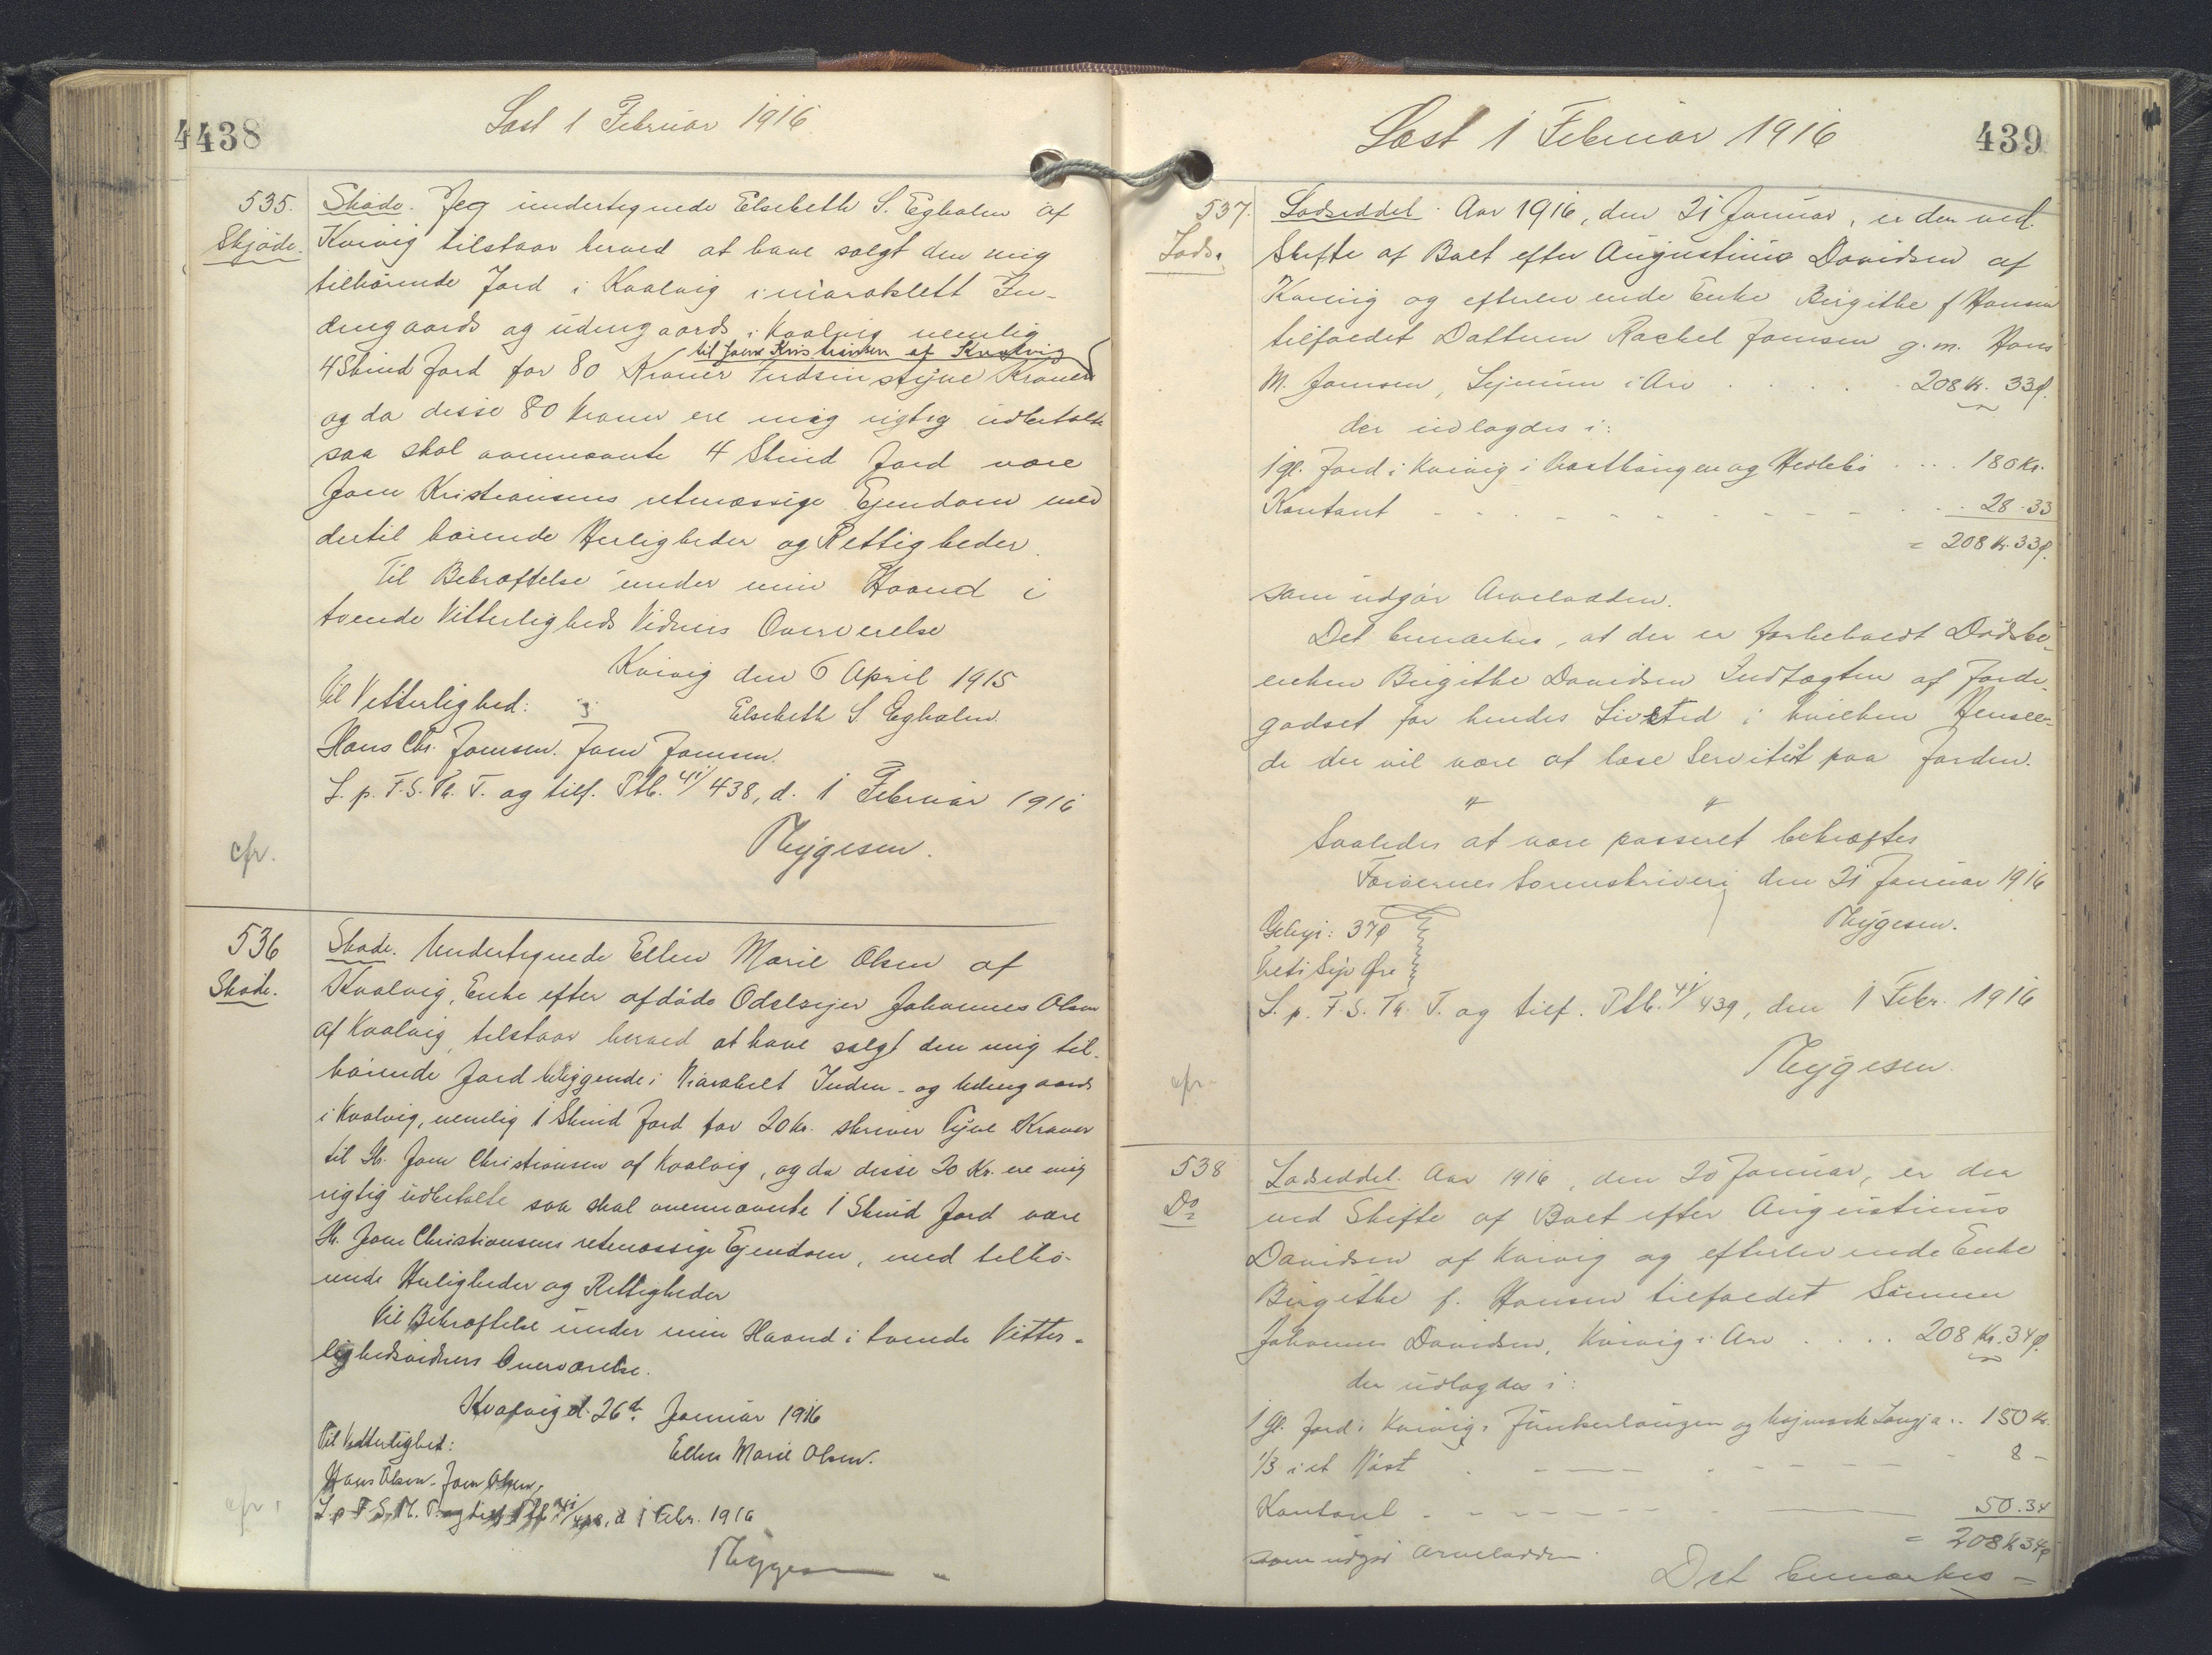 438
Læst 1 Februar 1916
535.
Skjöde.
Skøde. Jeg undertegnede Elsebeth S. Egholm af
Kvivig tilstaar herved at have solgt den mig
tilhørende Jord i Kvalvig i Niaroklett In-
dengaards og udengaards i Kvalvig nemlig
til Joen Kristiansen af Kvalvig
4 Skind Jord for 80 Kroner Firdsinstyve Kroner
og da disse 80 Kroner ere mig rigtig udbetalte
saa skal ovennævnte 4 Skind Jord være
Joen Kristiansens retmæssige Ejendom med
dertil hørende Herligheder og Rettigheder.
Til Bekræftelse under min Haand i
tvende Vitterligheds Vidners Overværelse
Kvivig den 6 April 1915
Til Vitterlighed:
Elsebeth S. Egholm.
Hans Chr. Joensen. Joen Joensen.
L. p. F. S. Th. T. og tilf. Ptb. 41/438, d. 1 Februar 1916
Thygesen.
cfr.
536
Skøde.
Skøde. Undertegnede Ellen Marie Olsen af
Kvalvig, Enke efter afdøde Odelsejer Johannes Olsen
af Kvalvig, tilstaar herved at have solgt den mig til-
hørende Jord beliggende i Niaroklett Inden- og Udengaards
i Kvalvig, nemlig 1 Skind Jord for 20 Kr. skriver Tyve Kroner
til Hr. Joen Christiansen af Kvalvig, og da disse 20 Kr. ere mig
rigtig udbetalte saa skal ovennævnte 1 Skind Jord være
Hr. Joen Christiansens retmæssige Ejendom, med tilhø-
rende Herligheder og Rettigheder
Til Bekræftelse under min Haand i tvende Vitter-
lighedsvidners Overværelse.
Kvalvig d. 26de Januar 1916
Til Vitterlighed:
Ellen Marie Olsen.
Hans Olsen. Joen Olsen.
L. p. F. S. Th. T. og tilf. Ptb. 41/438, d. 1 Febr. 1916
Thygesen
cfr.
Læst 1 Februar 1916
439
537.
Lods.
Lodseddel. Aar 1916, den 21 Januar, er der ved
Skifte af Boet efter Augustinus Davidsen af
Kvivig og efterlevende Enke Birgithe f. Hansen
tilfaldet Datteren Rachel Joensen g. m. Hans
M. Joensen, Lejnum i Arv . . . . 208 Kr. 33 Ø.
der udlagdes i:
1 gl. Jord i Kvivig i Vesthúngen og Heðlebø . . . . 180 Kr.
Kontant - - - - - - 28.33
= 208 Kr. 33 Ø.
som udgør Arvelodden.
Det bemærkes, at der er forbeholdt Dødsbo-
enken Birgithe Davidsen Indtægten af Jorde-
godset for hendes Livstid i hvilken Hensee-
de der vil være at læse Servitut paa Jorden.
Saaledes at være passeret bekræftes
Færøernes Sorenskriveri den 21 Januar 1916
Thygesen.
Gebyr: 37 Ø
Treti Syv Øre
L. p. F. S. Th. T. og tilf. Ptb. 41/439, den 1 Febr. 1916
Thygesen.
cfr.
538
Do
Lodseddel. Aar 1916, den 20 Januar, er der
ved Skifte af Boet efter Augustinus
Davidsen af Kvivig og efterlevende Enke
Birgithe f. Hansen tilfaldet Sønnen
Johannes Davidsen, Kvivig i Arv . . . . 208 Kr. 34 Ø.
der udlagdes i:
1 Gl. Jord i Kvivig i Junkerhaugen og Longja .. 150 Kr.
1/3 i et Nøst - - - - 8 -
Kontant - - - - - - 50.34
= 208 Kr 34 Ø
som udgør Arvelodden.
Det bemærkes -